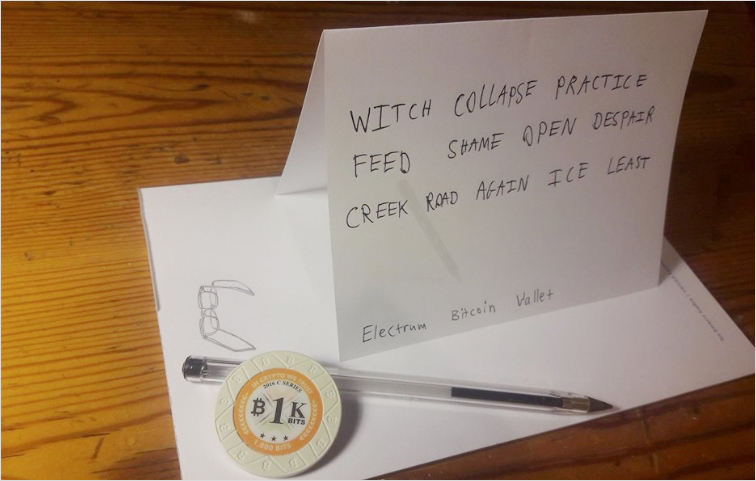 WITCH COLLAPSE PRACTICE
FEED SHAME OPEN DESPAIR
CREEK ROAD AGAIN ICE LEAST
Electrum Bitcoin Vallet
2016 C SERIES
₿1K
BITS
1000 BITS